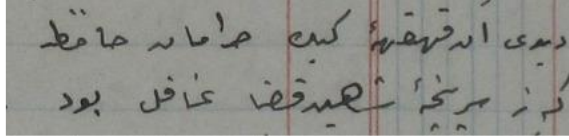 دیدی آن قهقههٔ کبک خرامان حافظ
که ز سرپنجهٔ شاهین قضا غافل بود